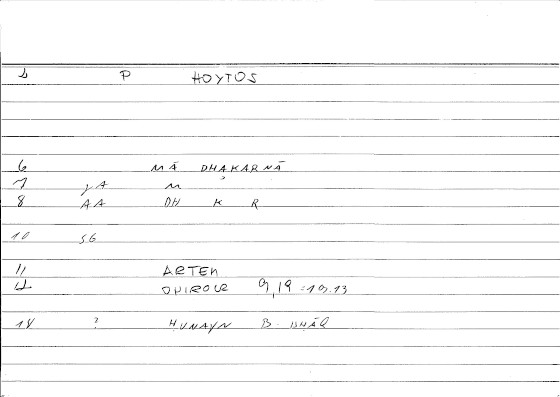 P HOYTOS
6 MĀ DHAKARNĀ
7 yA M
8 AA DH K R
10 SG
11 ARTEM
12 9,19 = 19.13
14 ? HUNAYN B. ISHĀQ